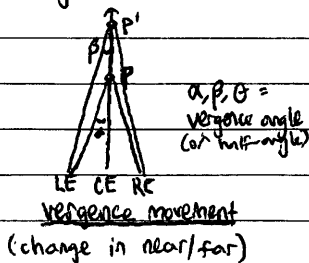 P'
β
P
α
α, β, θ =
vergence angle
(or half-angle)
LE CE RE
vergence movement
(change in near/far)